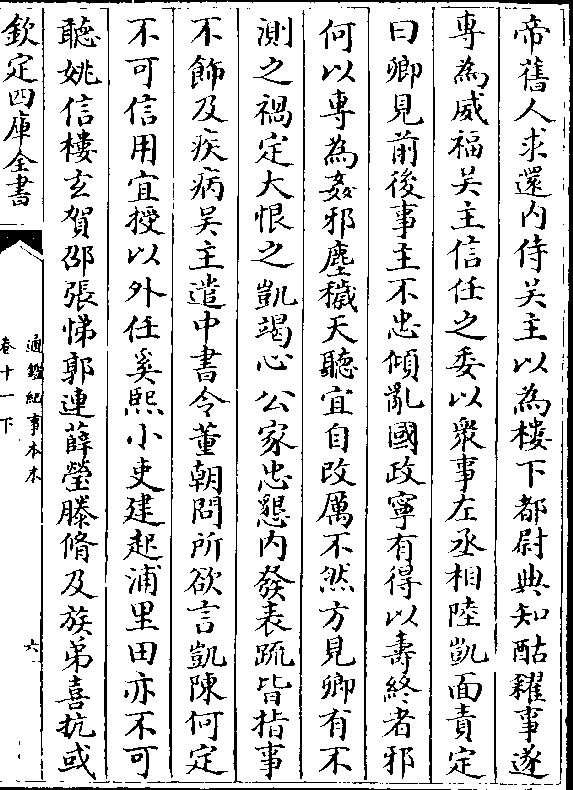 帝舊人求還內侍吴主以為樓下都尉典知酤糴事遂
專為威福吴主信任之委以衆事左丞相陸凱面責定
曰卿見前後事主不忠傾亂國政寧有得以壽終者邪
何以專為姦邪塵穢天聽宜自改厲不然方見卿有不
測之禍定大恨之凱竭心公家忠懇內發表疏皆指事
不飾及疾病吴主遣中書令董朝問所欲言凱陳何定
不可信用宜授以外任奚熙小吏建起浦里田亦不可
聽姚信樓玄賀邵張悌郭連薛瑩滕脩及族弟喜抗或
欽定四庫全書
通鑑紀事本末
卷十一下
六